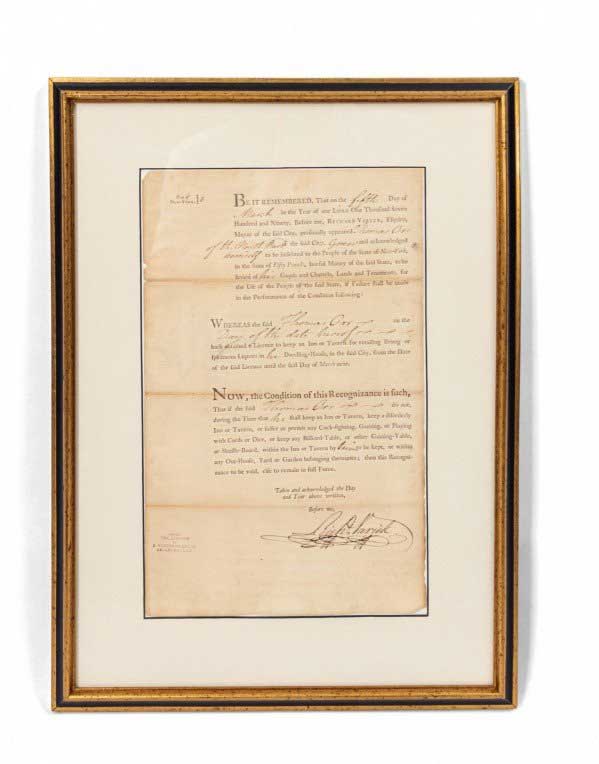 City of New-York, } ss
BE IT REMEMBERED, That on the fifth Day of
March in the Year of our LORD One Thousand Seven
Hundred and Ninety, Before me, RICHARD VARICK, Esquire,
Mayor of the said City, personally appeared Thomas Orr
of the North Ward the said City, Grocer and acknowledged
himself to be indebted to the People of the State of New-York,
in the Sum of Fifty Pounds, lawful Money of the said State, to be
levied of his Goods and Chattels, Lands and Tenements, for
the Use of the People of the said State, if Failure shall be made
in the Performance of the Condition following:
WHEREAS the said Thomas Orr on the
Day of the date hereof
hath obtained a Licence to keep an Inn or Tavern for retailing Strong or
Spirituous Liquors in his Dwelling-House, in the said City, from the Date
of the said Licence until the first Day of March next.
NOW, the Condition of this Recognizance is such,
That if the said Thomas Orr do not,
during the Time that he shall keep an Inn or Tavern, keep a disorderly
Inn or Tavern, or suffer or permit any Cock-fighting, Gaming, or Playing
with Cards or Dice, or keep any Billiard-Table, or other Gaming-Table,
or Shuffle-Board, within the Inn or Tavern by him to be kept, or within
any Out-House, Yard or Garden belonging thereunto; then this Recogni-
zance to be void, else to remain in full Force.
Taken and acknowledged the Day
and Year above written,
Before me,
Richd Varick